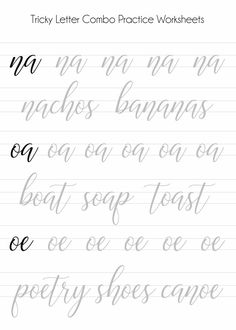 Tricky Letter Combo Practice Worksheets
na na na na na
nachos bananas
oa oa oa oa oa oa
boat soap toast
oe oe oe oe oe oe
poetry shoes canoe